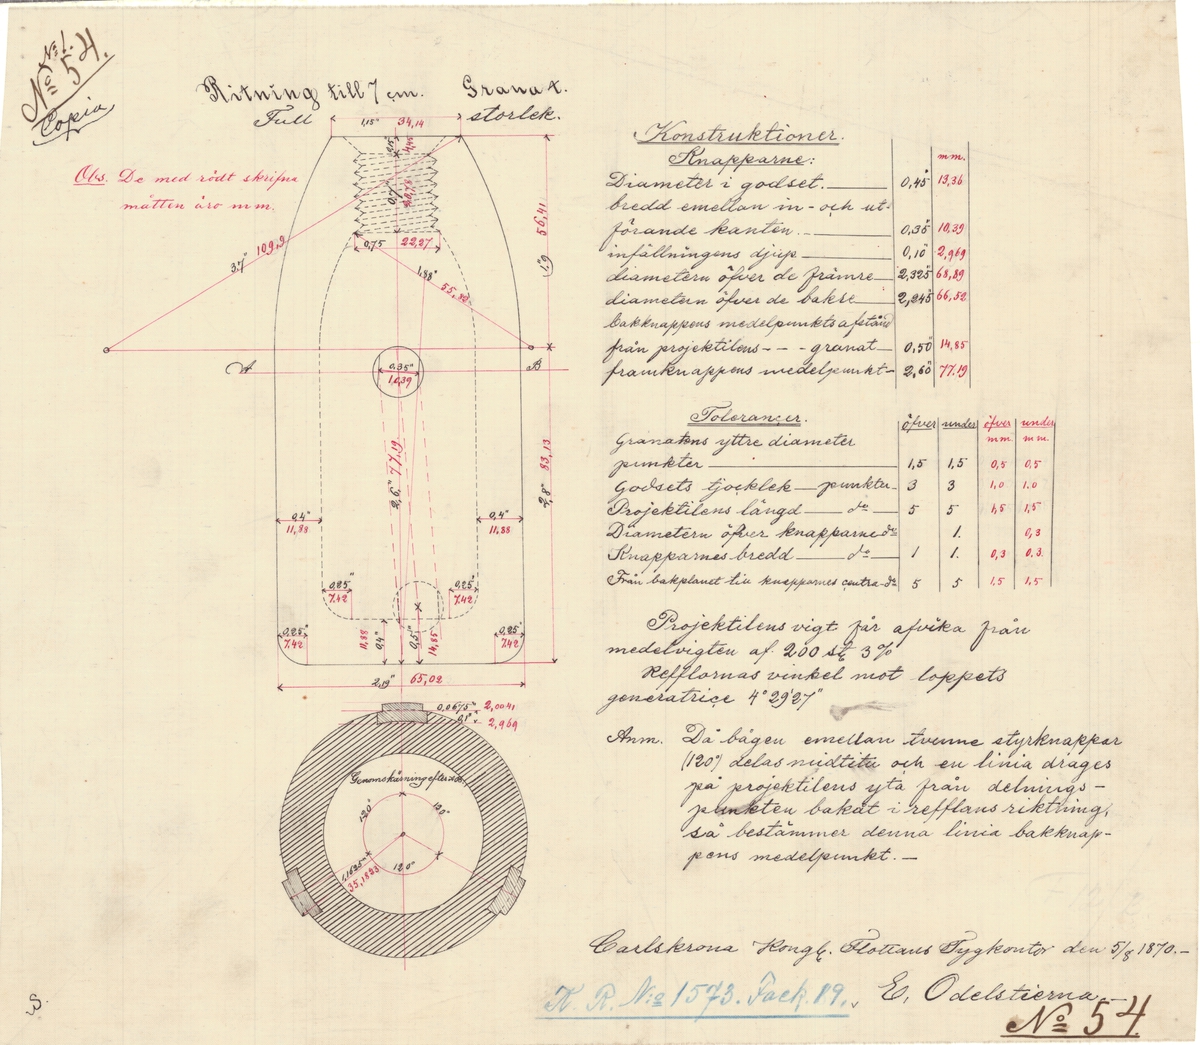 No 1.
No 54.
Copia
Ritning till 7 cm. Granat.
Full storlek.
Obs. De med rödt skrifna
måtten äro mm.
1,15" 34,14
0,15" 4,45
0,7"
0,75 22,27
3.7" 109,9
1,88" 55,82
56,41
1,9"
A B
0,35"
10,39
2,6" 77.19
2,8" 83,13
0,4"
11,88
0,4"
11,88
0,25"
7.42
0,25"
7.42
0,25"
7.42
0,25"
7.42
11,88 0,4" 0,5" 14,85
2,19" 65,02
0,0675" 2,0041
0,1" 2,969
Genomskärning efter AB.
120° 120°
120°
35,1823
Konstruktioner.
Knapparne: mm.
Diameter i godset. 0,45" 13,36
bredd emellan in- och ut-
förande kanten. 0,35" 10,39
infällningens djup 0,10" 2,969
diametern öfver de främre 2,325" 68,89
diametern öfver de bakre 2,245" 66,52
bakknappens medelpunkts afstånd
från projektilens - - - granat 0,50" 14,85
framknappens medelpunkt 2,60" 77.19
Toleranser. öfver under öfver mm. under mm.
Granatens yttre diameter
punkter 1,5 1,5 0,5 0,5
Godsets tjocklek punkter 3 3 1,0 1,0
Projektilens längd do 5 5 1,5 1,5
Diametern öfver knapparne do 1. 0,3
Knapparnes bredd do 1 1. 0,3 0.3.
Från bakplanet till knapparnes centra do 5 5 1,5 1,5
Projektilens vigt får afvika från
medelvigten af 200 st 3%
Refflornas vinkel mot loppets
generatrice 4° 29' 27"
Anm. Då bågen emellan tvenne styrknappar
(120°) delas midtitu och en linia drages
på projektilens yta från delnings-
punkten bakåt i refflans riktning,
så bestämmer denna linia bakknap-
pens medelpunkt. —
Carlskrona Kongl. Flottans Tygkontor den 5/8 1870. —
E. Odelstierna. —
K. R. No 1573. Fack. 19.
No 54
S.